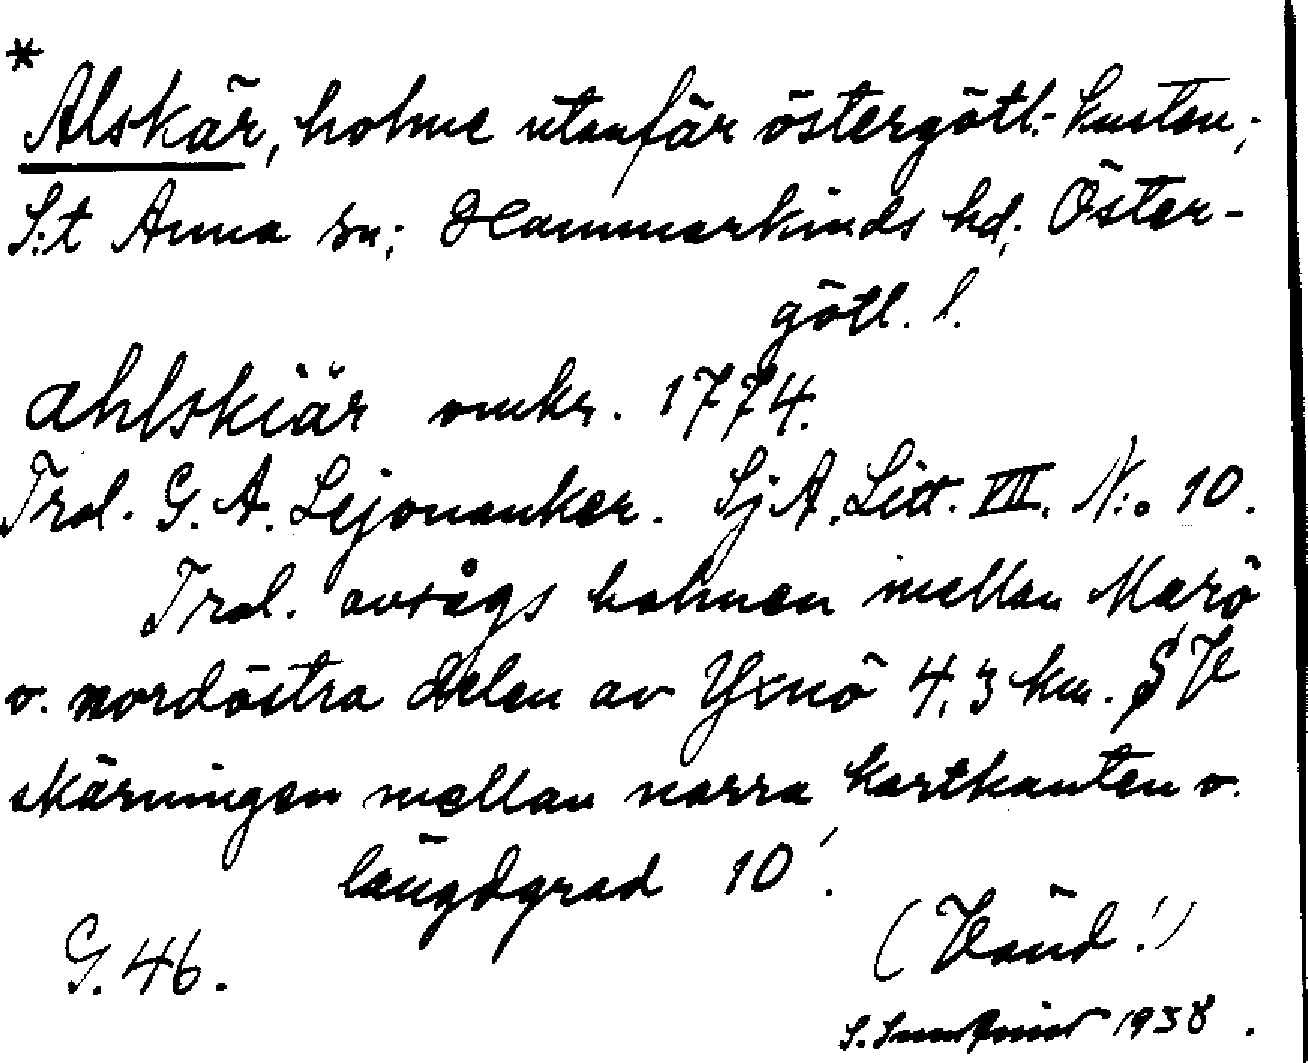 *
Alskär, holme utanför östergötl. kusten;
S:t Anna sn; Hammarkinds hd; Öster-
götl. l.
Ahlskiär omkr. 1774.
Trol. G. A. Lejonanker. SjA. Litt. VIII. N:o 10.
Trol. avsågs holmen mellan Marö
o. nordöstra delen av Yxnö 4,3 km. SV
skärningen mellan norra kartkanten o.
längdgrad 10'.
(Vänd!)
G. 46.
1938.